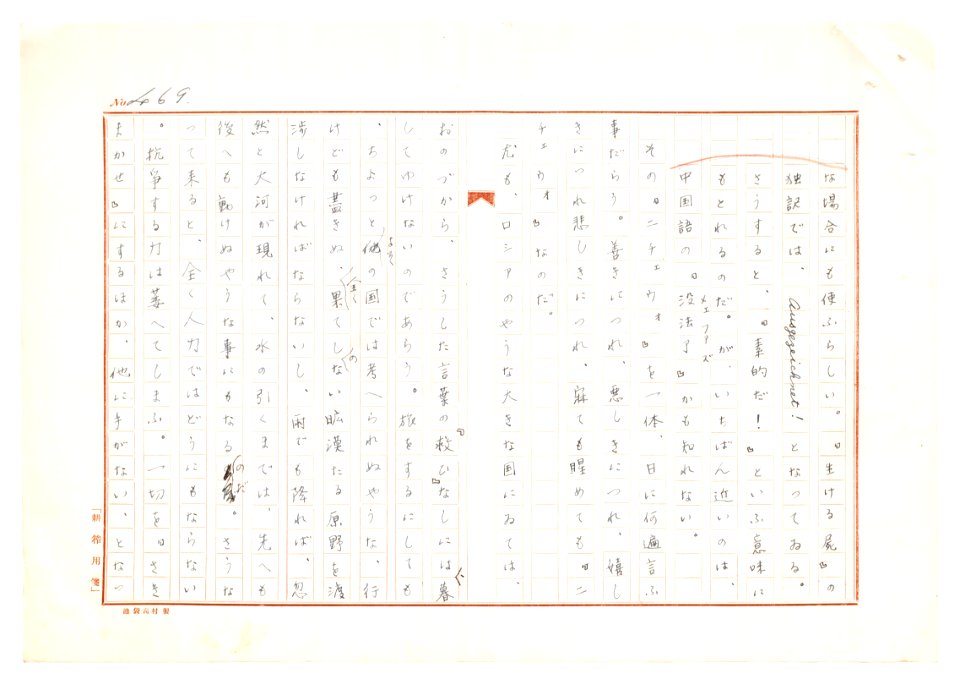 No. 469.
な場合にも使ふらしい。『生ける屍』の
独訳では、Ausgezeichnet! となつてゐる。
さうすると、『素的だ!』といふ意味に
もとれるのだ。が、いちばん近いのは、
中国語の『没法了』かも知れない。
メエファーズ
その『ニチェウォ』を一体、日に何遍言ふ
事だらう。善きにつれ、悪しきにつれ、嬉し
きにつれ悲しきにつれ、寐ても醒めても『ニ
チェウォ』なのだ。
尤も、ロシアのやうな大きな国にゐては、
おのづから、さうした言葉の『救ひ』なしには暮
してゆけないのであらう。旅をするにしても
、ちよつと他の国では考へられぬやうな、行
よそ
けども盡きぬ、全く果てしのない曠漠たる原野を渡
渉しなければならないし、雨でも降れば、忽
然と大河が現れて、水の引くまでは、先へも
後へも動けぬやうな事にもなるのだ。さうな
つて来ると、全く人力ではどうにもならない
。抗争する力は萎へてしまふ。一切を『さき
まかせ』にするほか、他に手がない、となつ
「耕筰用箋」